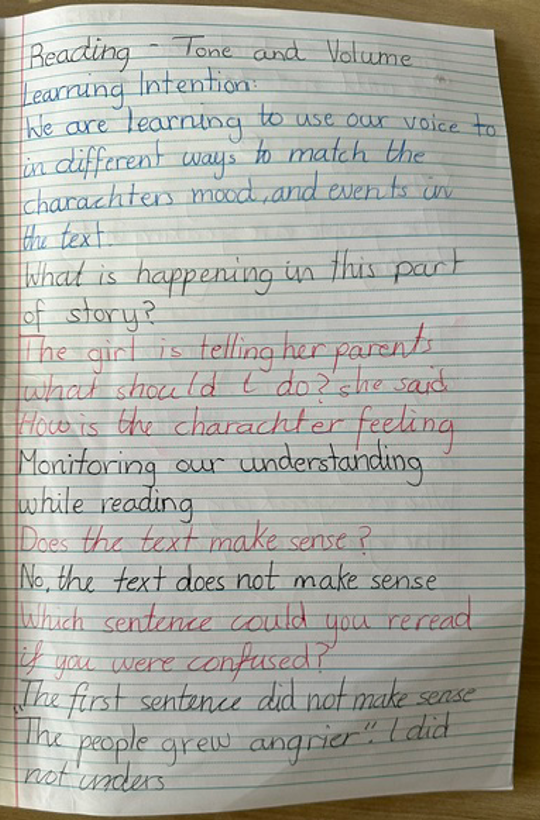 Reading - Tone and Volume
Learning Intention:
We are learning to use our voice to
in different ways to match the
charachters mood, and events in
the text.
What is happening in this part
of story?
The girl is telling her parents
what should I do? she said
How is the charachter feeling
Monitoring our understanding
while reading
Does the text make sense?
No, the text does not make sense
Which sentence could you reread
if you were confused?
The first sentence did not make sense
"The people grew angrier". I did
not unders